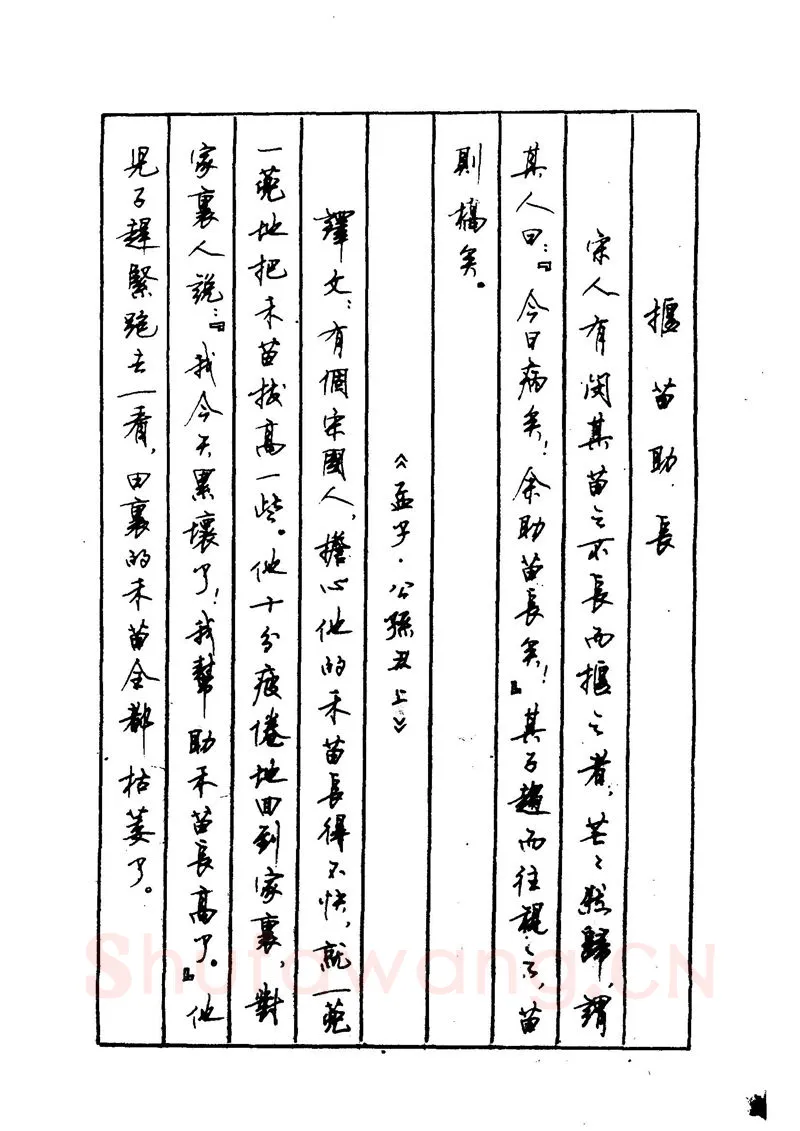 揠苗助長
宋人有閔其苗之不長而揠之者，芒〻然歸，謂
其人曰：『今日病矣！余助苗長矣！』其子趨而往視之，苗
則槁矣。
《孟子·公孫丑上》
譯文：有個宋國人，擔心他的禾苗長得不快，就一蔸
一蔸地把禾苗拔高一些。他十分疲倦地回到家裏，對
家裏人說：『我今天累壞了！我幫助禾苗長高了。』他
兒子趕緊跑去一看，田裏的禾苗全都枯萎了。
Shufawang.CN